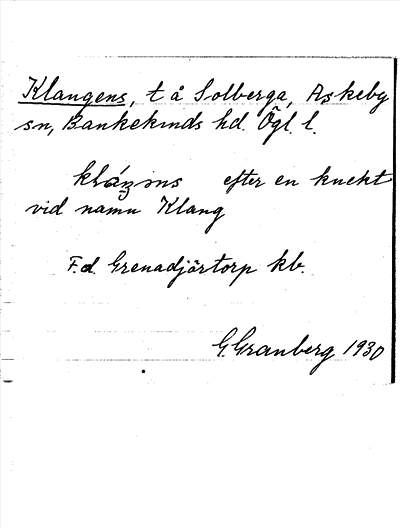 Klangens, t å Solberga, Askeby
sn, Bankekinds hd. Ögl. l.
efter en knekt
vid namn Klang
F.d. Grenadjörtorp kb.
G. Granberg 1930